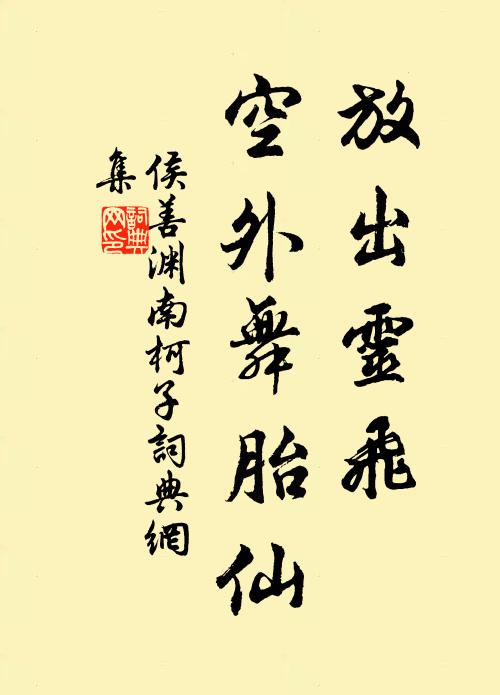 放出靈飛
空外舞胎仙
侯善渊南柯子詞典網
集
詞典网印